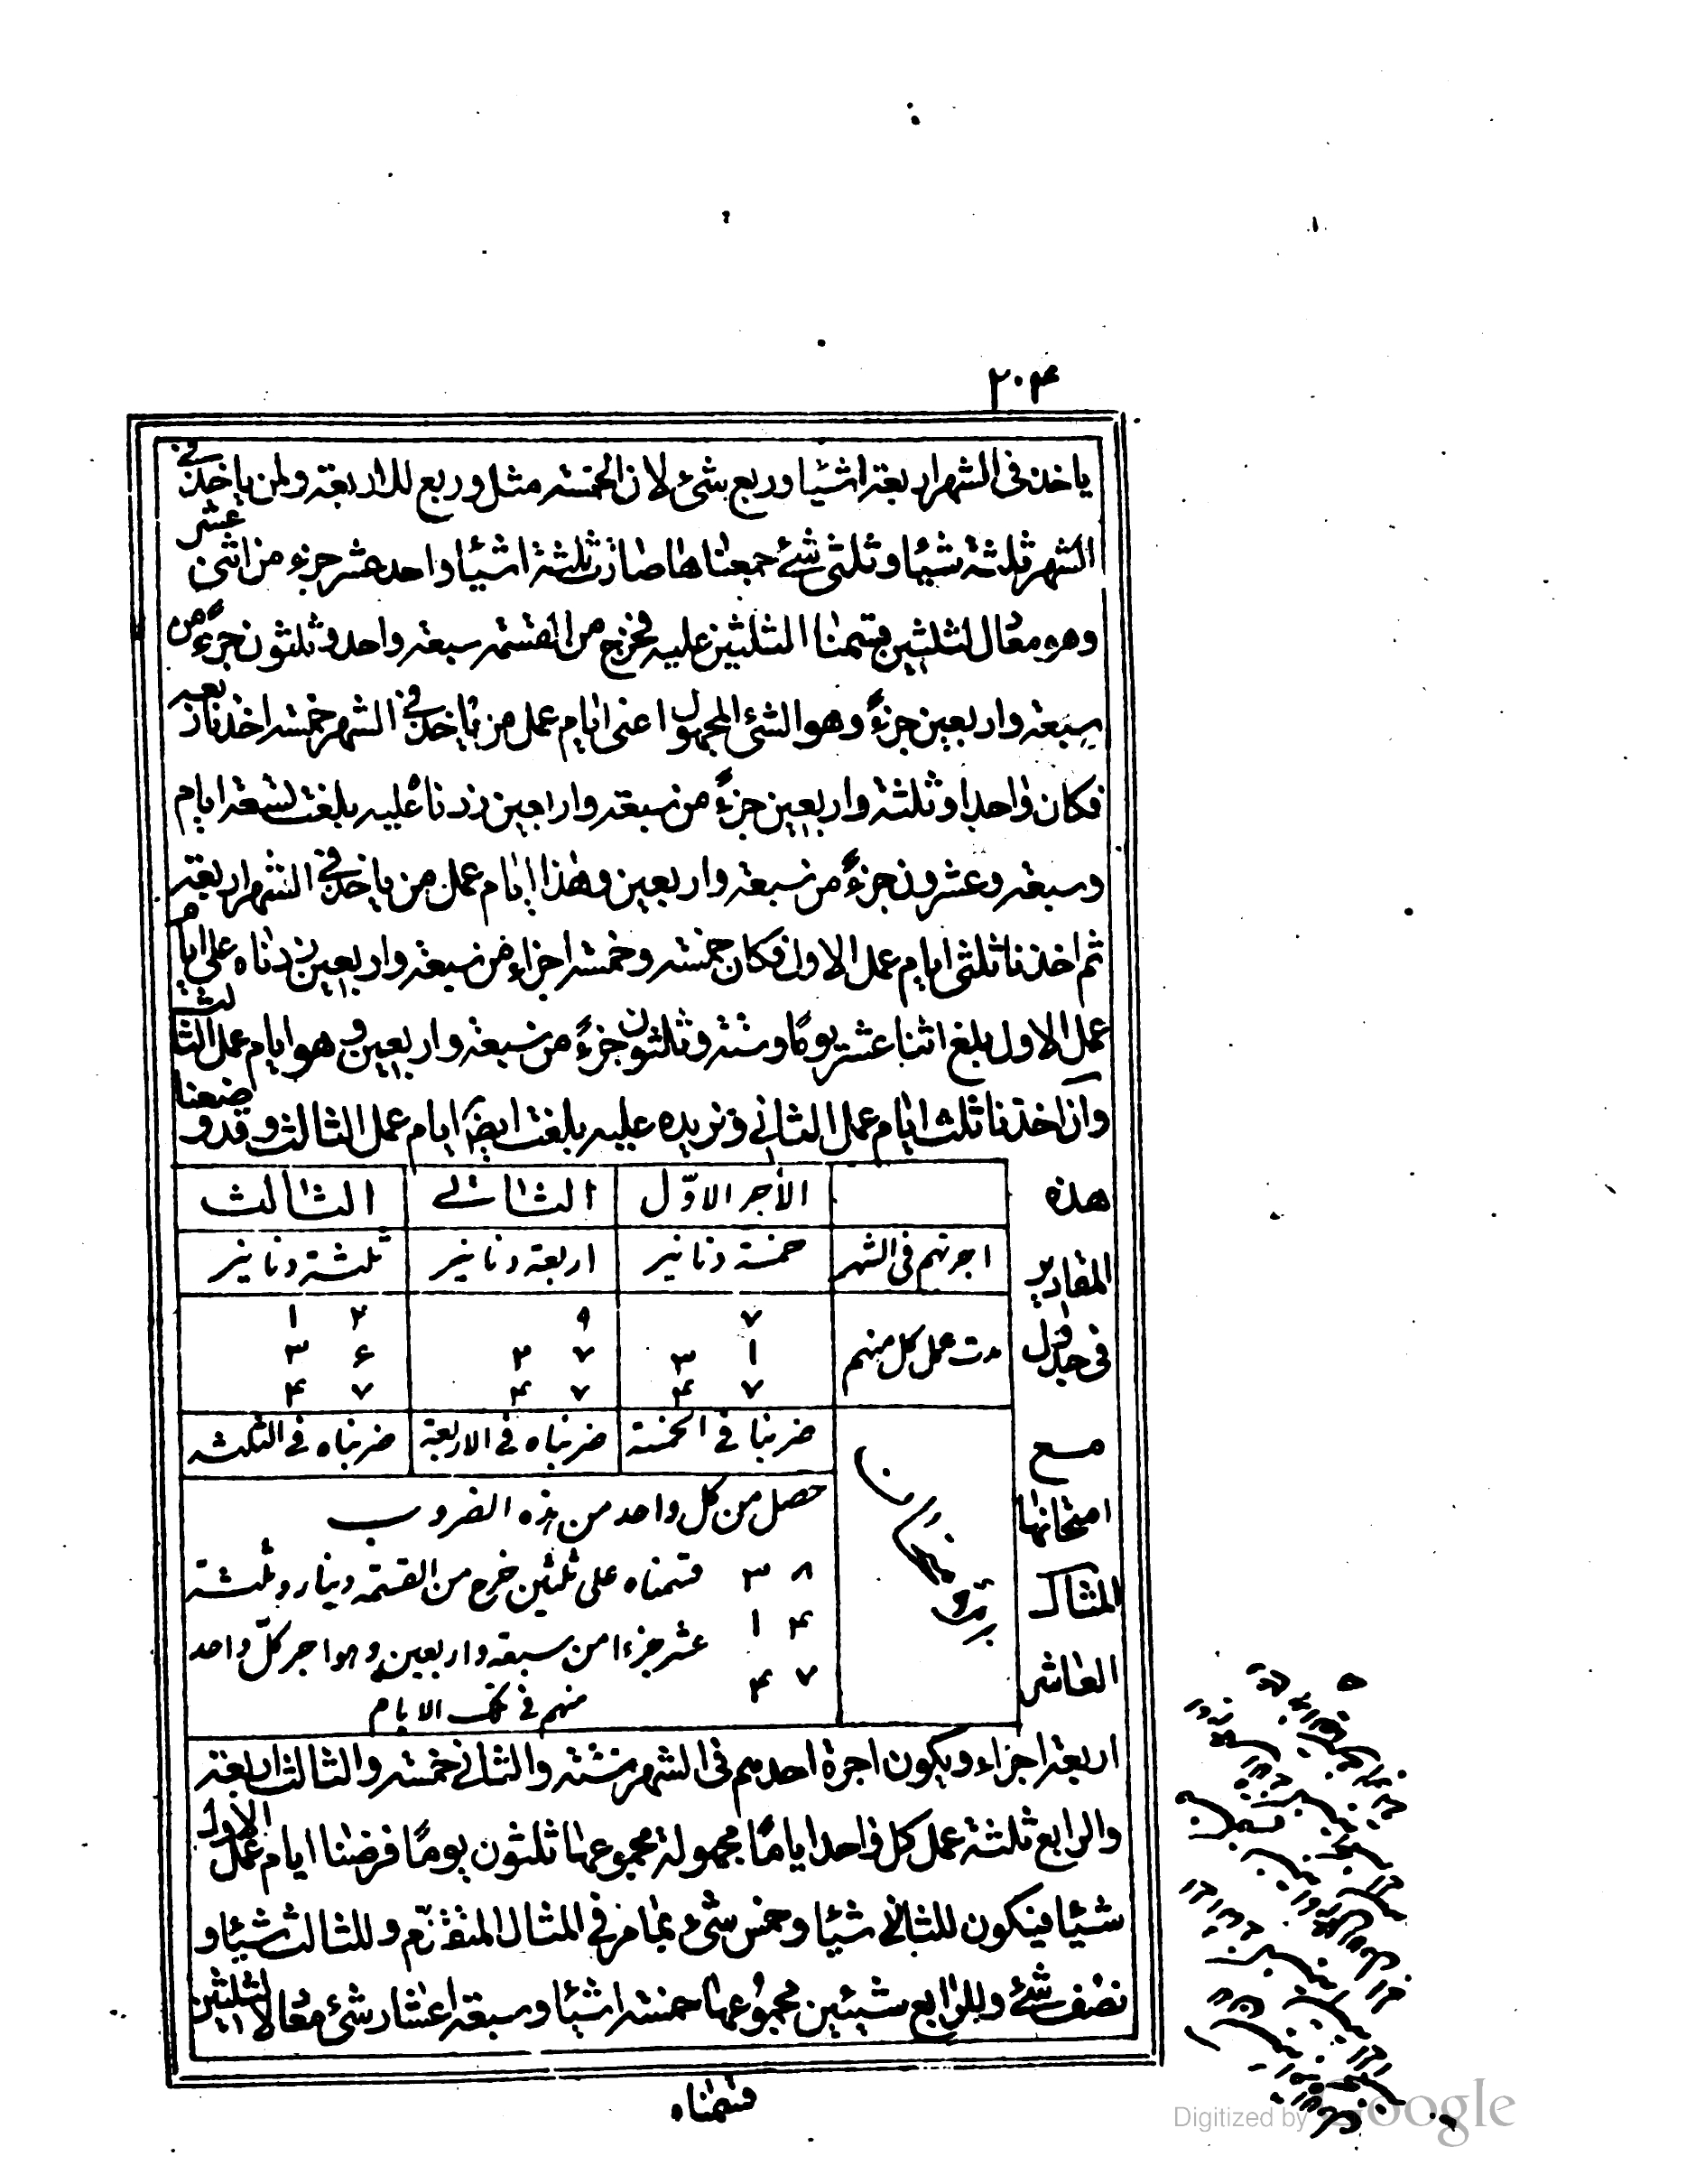 ٢٠۴
ياخذ فى الشهر اربعة اشيا وربع شئ لان الخمسة مثل وربع للاربعة ولمن ياخذ فى
الشهر ثلثة شيئا وثلثى شئ جمعناها صارت ثلثة اشيا واحد عشر جزء من اثنى عشر
وهو معادل لثلثين قسمنا الثلثين عليه فخرج من القسمة سبعة واحد وثلثون جزءً من
سبعة واربعين جزءً وهو الشئ المجهول اعنى ايام عمل من ياخذ فى الشهر خمسة اخذنا ربعه
فكان واحدا وثلثة واربعين جزءً من سبعة واربعين زدنا عليه بلغت تسعة ايام
وسبعة وعشرون جزءً من سبعة واربعين وهذا ايام عمل من ياخذ فى الشهر اربعة
ثم اخذنا ثلثى ايام عمل الاول فكان خمسة وخمسة اجزاء من سبعة واربعين زدناه على ايام
عمل الاول بلغ اثنا عشر يومًا وستة وثلثون جزءً من سبعة واربعين و هو ايام عمل الثالث
وان اخذنا ثلث ايام عمل الثانى ونزيده عليه بلغت ايضًا ايام عمل الثالث و قد وضعنا
هذه
المقادير
فى جداول
مع
امتحانها
المثال
العاشر
الأجر الاوّل الثانى الثالث
اجرتهم فى الشهر خمسة دنانير اربعة دنانير ثلثة دنانير
مدت عمل كل منهم
٧ ٩ ١٢
٣١ ٢٧ ٣۶
۴٧ ۴٧ ۴٧
ضربنا فى الخمسة ضربناه فى الاربعة ضربناه فى الثلثة
حصل من كل واحد من هذه الضروب
٣٨ قسمناه على ثلثين خرج من القسمة دينار وثلثة
١۴ عشر جزءا من سبعة واربعين وهو اجر كلّ واحد
۴٧ منهم فى تلك الايام
اربعة اجزاء ويكون اجرة احدهم فى الشهر ستة والثانى خمسة والثالث اربعة
والرابع ثلثة عمل كل واحد ايامًا مجهولة مجموعها ثلثون يومًا فرضنا ايام عمل الاول
شيئا فيكون للثانى شيئا وخمس شئ بما مر فى المثال المتقدّم وللثالث شيئا و
نصف شئ وللرابع شيئين مجموعها خمسة اشيا وسبعة اعشار شئ معادلا لثلثين
قسمناه
Digitized by Google